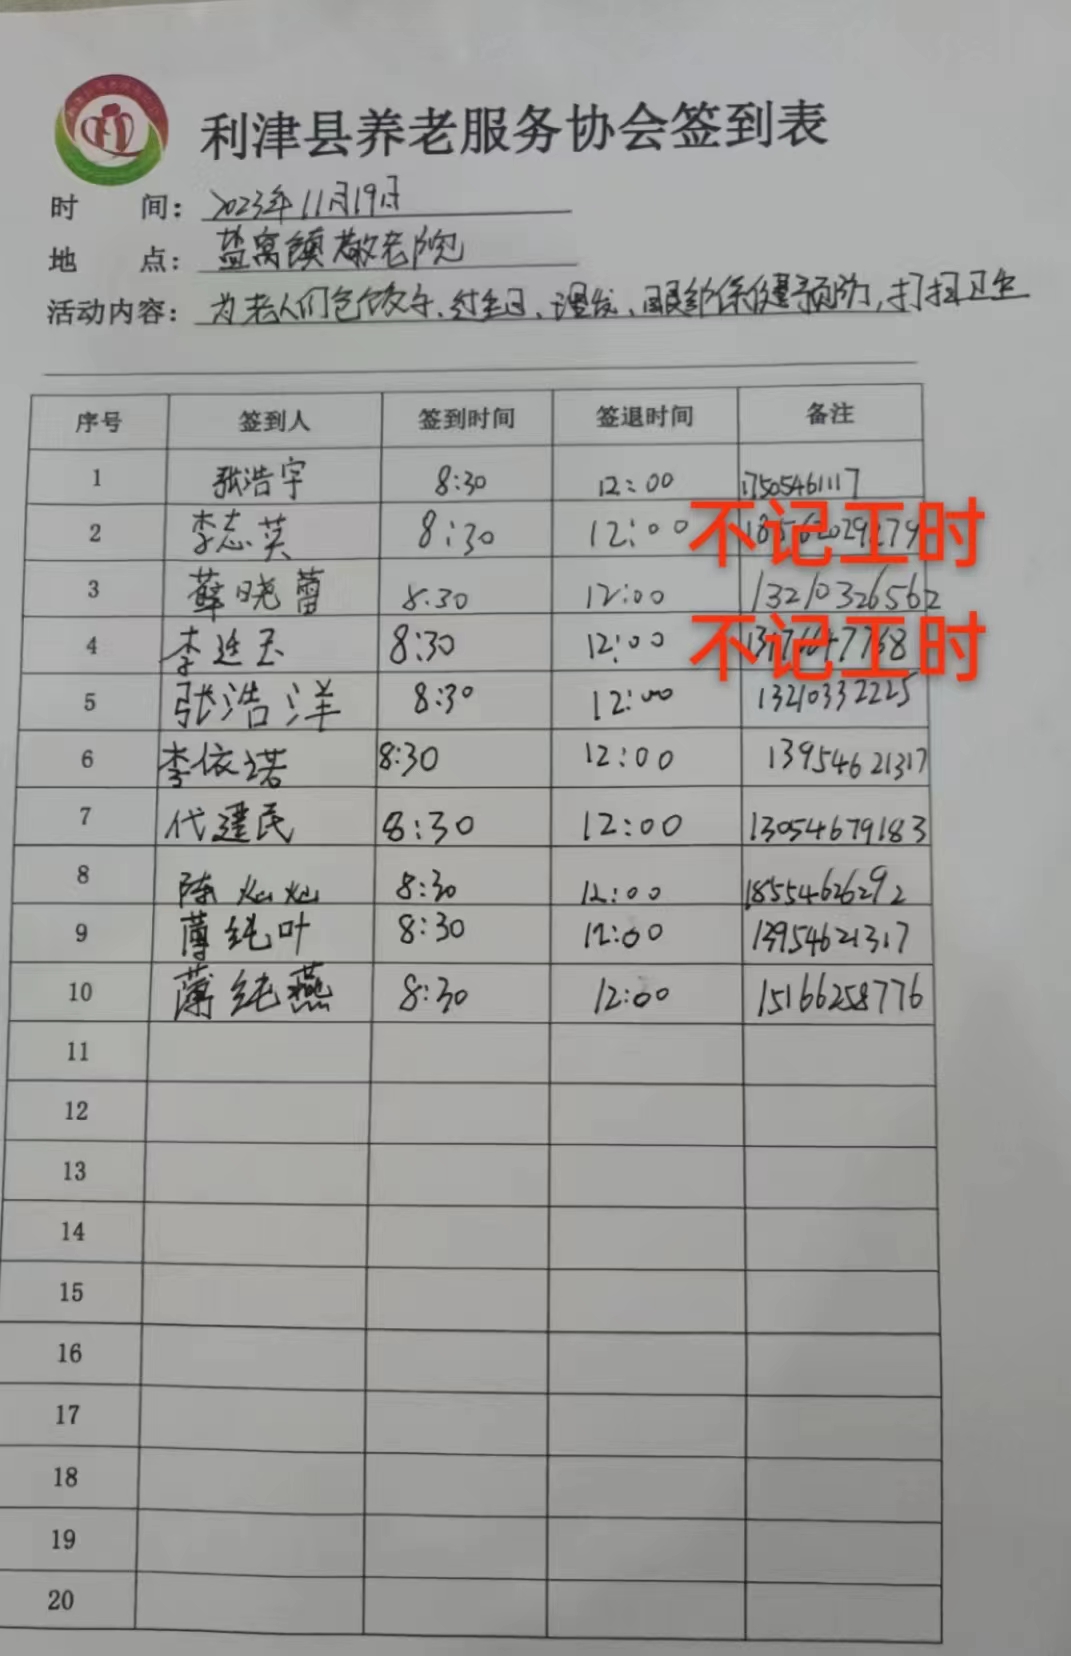 利津县养老服务协会签到表
时 间: 2023年11月19日
地 点: 盐窝镇敬老院
活动内容: 为老人们包饺子、过生日、理发、眼部保健预防,打扫卫生
序号 签到人 签到时间 签退时间 备注
1 张浩宇 8:30 12:00 17505461117
2 李志英 8:30 12:00 不记工时
3 薛晓蕾 8:30 12:00 13210326562
4 李延玉 8:30 12:00 不记工时
5 张浩洋 8:30 12:00 13210332225
6 李依诺 8:30 12:00 13954621317
7 代建民 8:30 12:00 13054679183
8 陈灿灿 8:30 12:00 18554626292
9 薄纯叶 8:30 12:00 13954621317
10 薄纯燕 8:30 12:00 15166258776
11
12
13
14
15
16
17
18
19
20